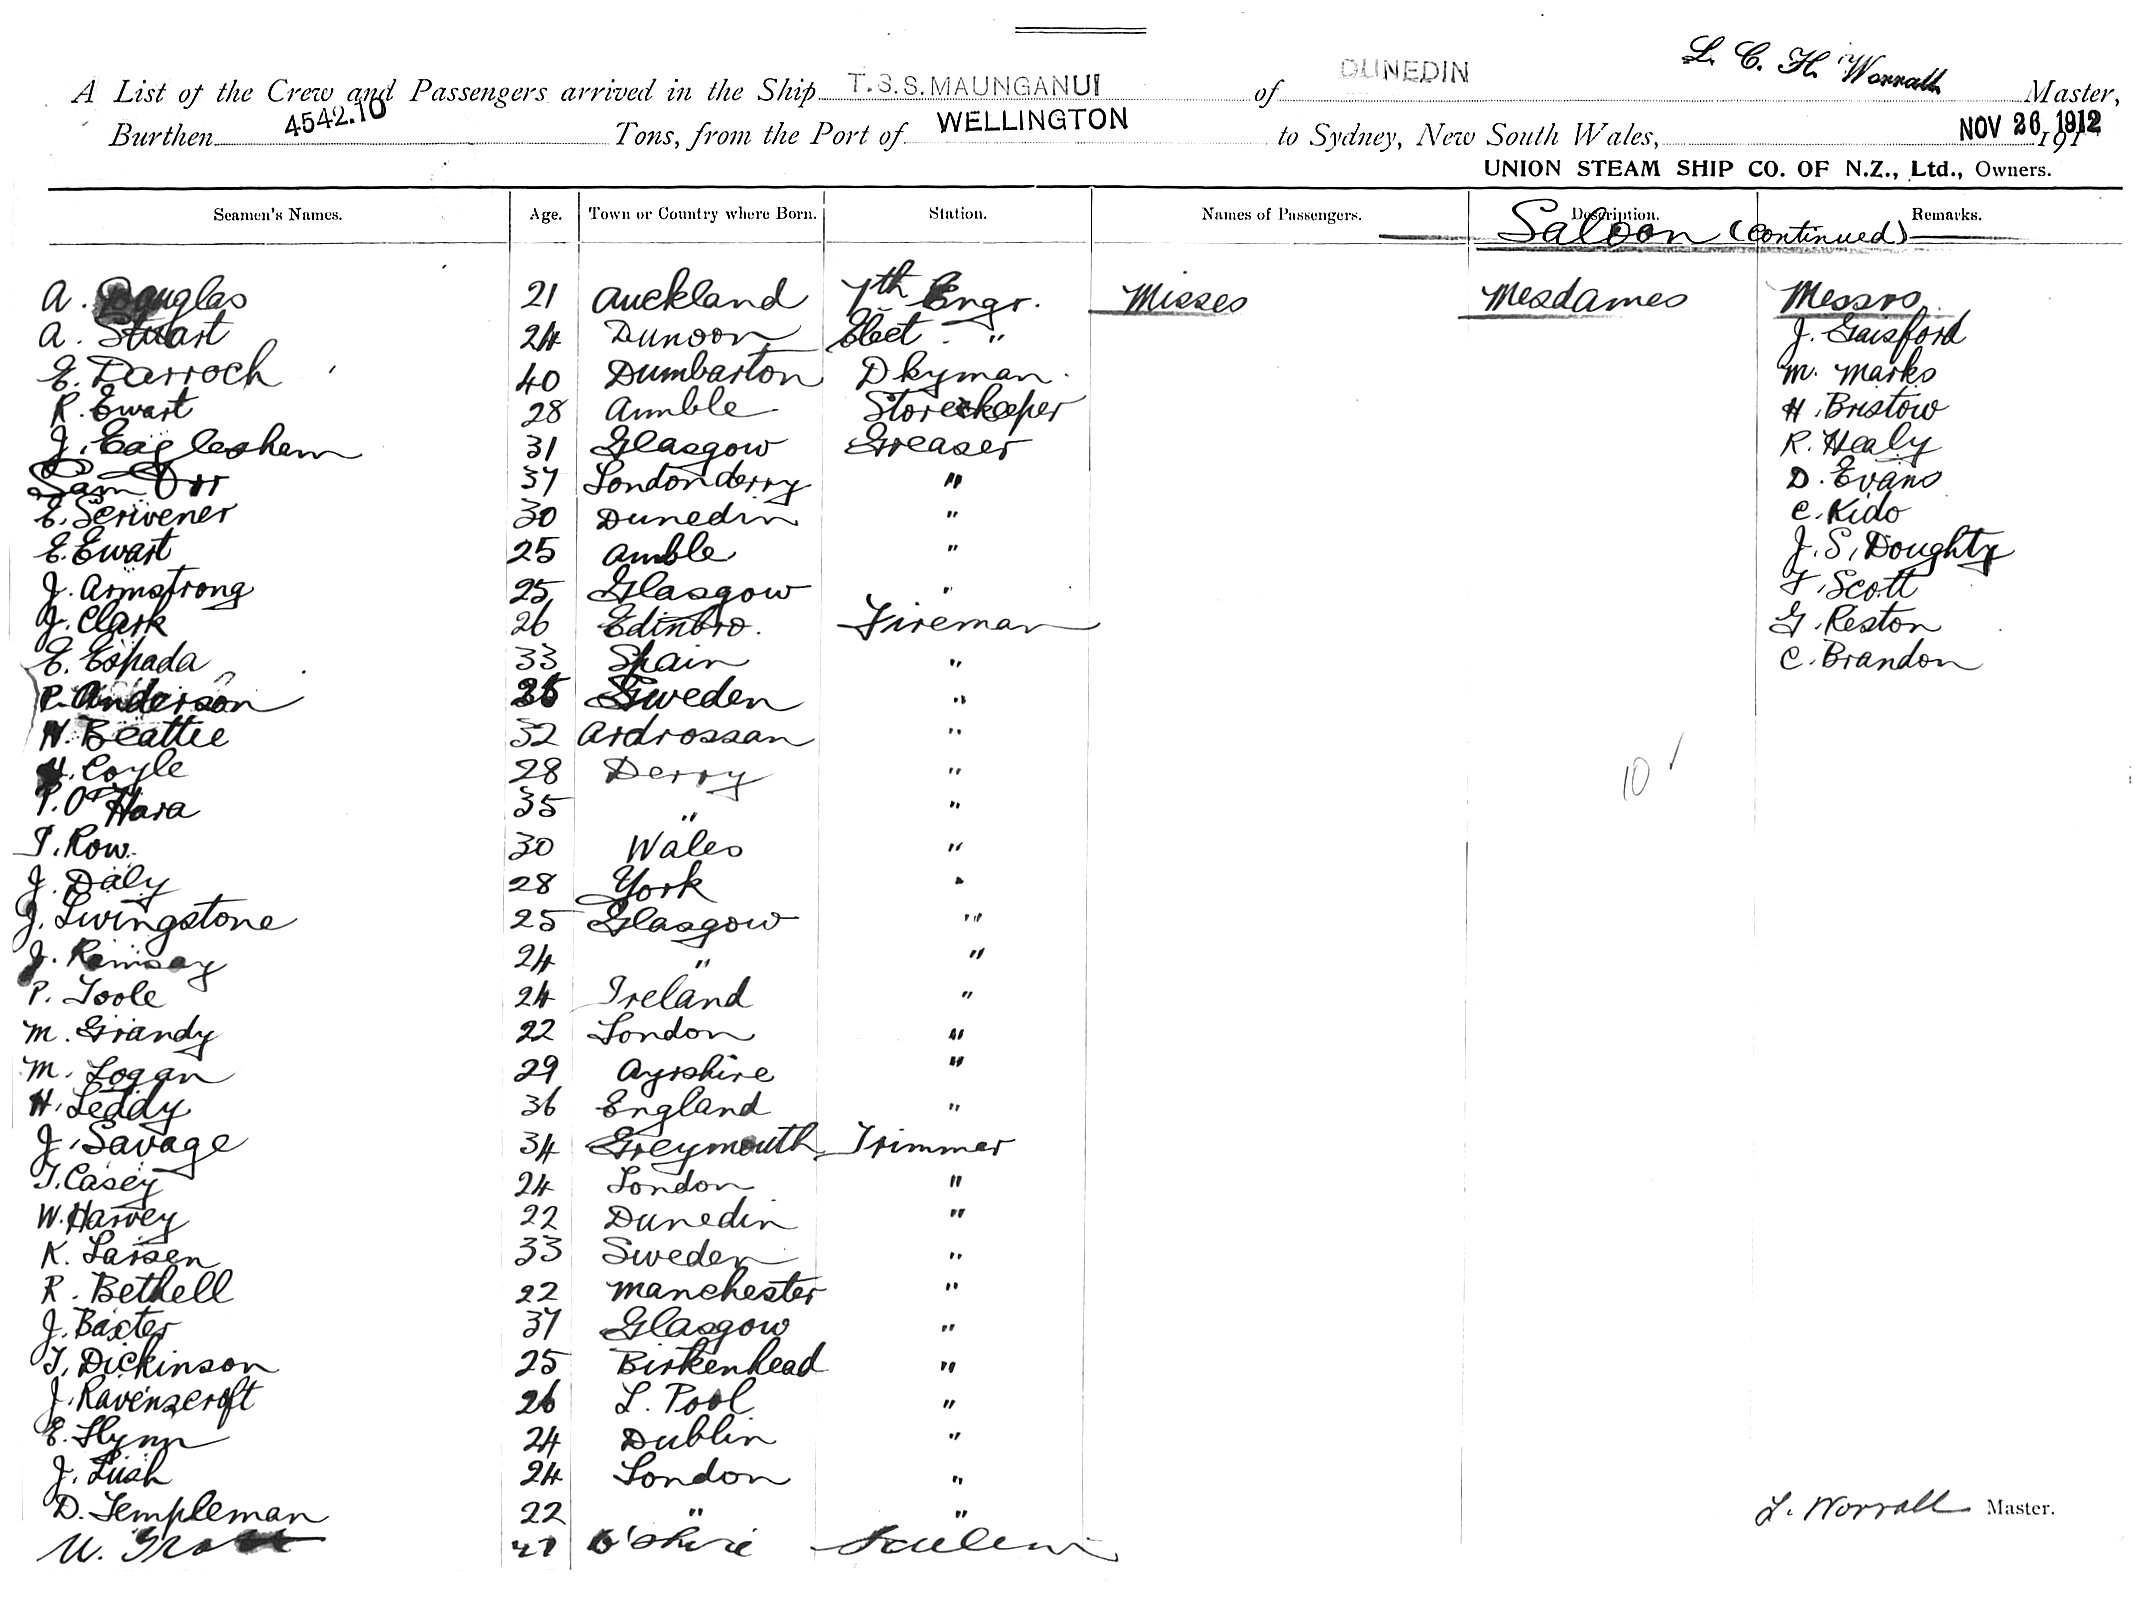 A List of the Crew and Passengers arrived in the Ship T.S.S. MAUNGANUI of DUNEDIN L. C. H. Worrall Master,
Burthen 4542.10 Tons, from the Port of WELLINGTON to Sydney, New South Wales, NOV 26 1912 191
UNION STEAM SHIP CO. OF N.Z., Ltd., Owners.
Seamen's Names. Age. Town or Country where Born. Station. Names of Passengers. Description. Remarks.
Saloon (continued)
A. Douglas 21 Auckland 7th Engr. Misses Mesdames Messrs
A. Stuart 24 Dunoon Elect. " J. Gaisford
E. Darroch 40 Dumbarton Dkyman. M. Marks
R. Ewart 28 Amble Storekeeper H. Bristow
J. Eaglesham 31 Glasgow Greaser R. Healy
Sam Orr 37 Londonderry " D. Evans
E. Scrivener 30 Dunedin " C. Kido
E. Ewart 25 Amble " J. S. Doughty
J. Armstrong 25 Glasgow " F. Scott
J. Clark 26 Edinbro. Fireman G. Reston
E. Espada 33 Spain " C. Brandon
P. Anderson Sweden "
N. Beattie 32 Ardrossan "
H. Coyle 28 Derry "
P. O'Hara 35 " "
T. Row. 30 Wales "
J. Daly 28 York "
J. Livingstone 25 Glasgow "
J. Ramsay 24 " "
P. Toole 24 Ireland "
M. Grandy 22 London "
M. Logan 29 Ayrshire "
H. Leddy 36 England "
J. Savage 34 Greymouth Trimmer
T. Casey 24 London "
W. Harvey 22 Dunedin "
K. Larsen 33 Sweden "
R. Bethell 22 Manchester "
J. Baxter 37 Glasgow "
T. Dickinson 25 Birkenhead "
J. Ravenscroft 26 L. Pool "
E. Flynn 24 Dublin "
J. Lush 24 London "
D. Templeman 22 " "
10
L. Worrall Master.